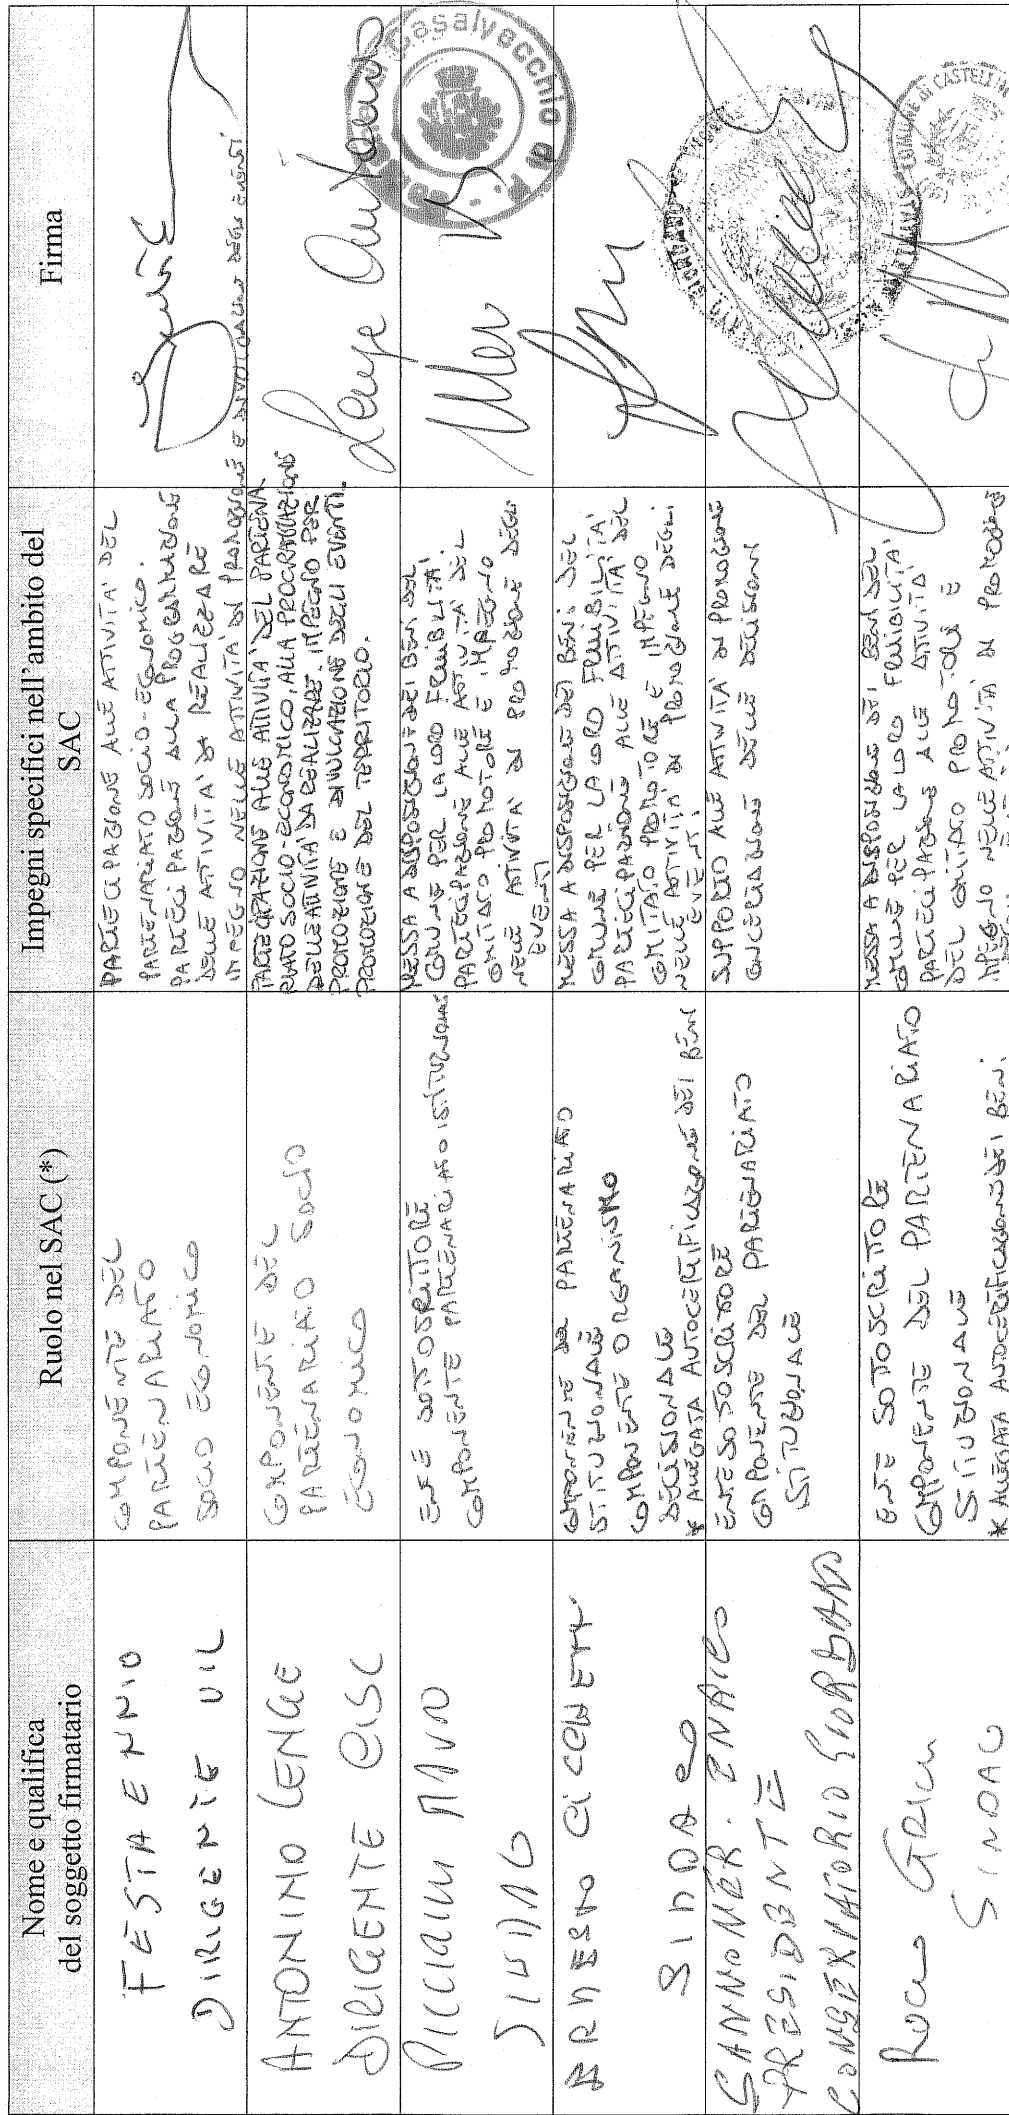 Nome e qualifica
del soggetto firmatario
Ruolo nel SAC (*)
Impegni specifici nell'ambito del
SAC
Firma
FESTA ENNIO
DIRIGENTE UIL
COMPONENTE DEL
PARTENARIATO
SOCIO ECONOMICO
PARTECIPAZIONE ALLE ATTIVITA' DEL
PARTENARIATO SOCIO-ECONOMICO.
PARTECIPAZIONE ALLA PROGRAMMAZIONE
DELLE ATTIVITA' DA REALIZZARE
IMPEGNO NELLE ATTIVITA' DI PROMOZIONE E DIVULGAZIONE DEGLI EVENTI
ANTONINO LENGE
DIRIGENTE CISL
COMPONENTE DEL
PARTENARIATO SOCIO
ECONOMICO
PARTECIPAZIONE ALLE ATTIVITA' DEL PARTENA
RIATO SOCIO-ECONOMICO, ALLA PROGRAMMAZIONE
DELLE ATTIVITA' DA REALIZZARE. IMPEGNO PER
PROMOZIONE E DIVULGAZIONE DEGLI EVENTI.
PROMOZIONE DEL TERRITORIO.
Lenge Antonino
SINDACO
ENTE SOTTOSCRITTORE
COMPONENTE PARTENARIATO ISTITUZIONALE
MESSA A DISPOSIZIONE DEI BENI DEL
COMUNE PER LA LORO FRUIBILITA'.
PARTECIPAZIONE ALLE ATTIVITA' DEL
COMITATO PROMOTORE E IMPEGNO
NELLE ATTIVITA' DI PROMOZIONE DEGLI
EVENTI
Casalvecchio di P.
CICCHETTI
SINDACO
COMPONENTE DEL PARTENARIATO
ISTITUZIONALE
COMPONENTE ORGANISMO
DECISIONALE
* ALLEGATA AUTOCERTIFICAZIONE DEI BENI
MESSA A DISPOSIZIONE DEI BENI DEL
COMUNE PER LA LORO FRUIBILITA'
PARTECIPAZIONE ALLE ATTIVITA' DEL
COMITATO PROMOTORE E IMPEGNO
NELLE ATTIVITA' DI PROMOZIONE DEGLI
EVENTI.
PRESIDENTE
CONSERVATORIO GIORDANO
ENTE SOTTOSCRITTORE
COMPONENTE DEL PARTENARIATO
ISTITUZIONALE
SUPPORTO ALLE ATTIVITA' DI PROMOZIONE
DELLE DECISIONI
UMBERTO GIORDANO
SINDACO
ENTE SOTTOSCRITTORE
COMPONENTE DEL PARTENARIATO
ISTITUZIONALE
* ALLEGATA AUTOCERTIFICAZIONE DEI BENI
MESSA A DISPOSIZIONE DEI BENI DEL
COMUNE PER LA LORO FRUIBILITA'
PARTECIPAZIONE ALLE ATTIVITA'
DEL COMITATO PROMOTORE E
IMPEGNO NELLE ATTIVITA' DI PROMOZIONE
COMUNE DI CASTELLUCCIO